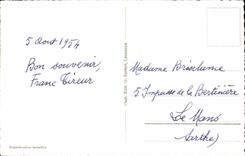 5 Aout 1954
Bon souvenir,
Franc Tireur
Madame Briselume
5 Impasse de la Bertinière
Le Mans
(Sarthe)